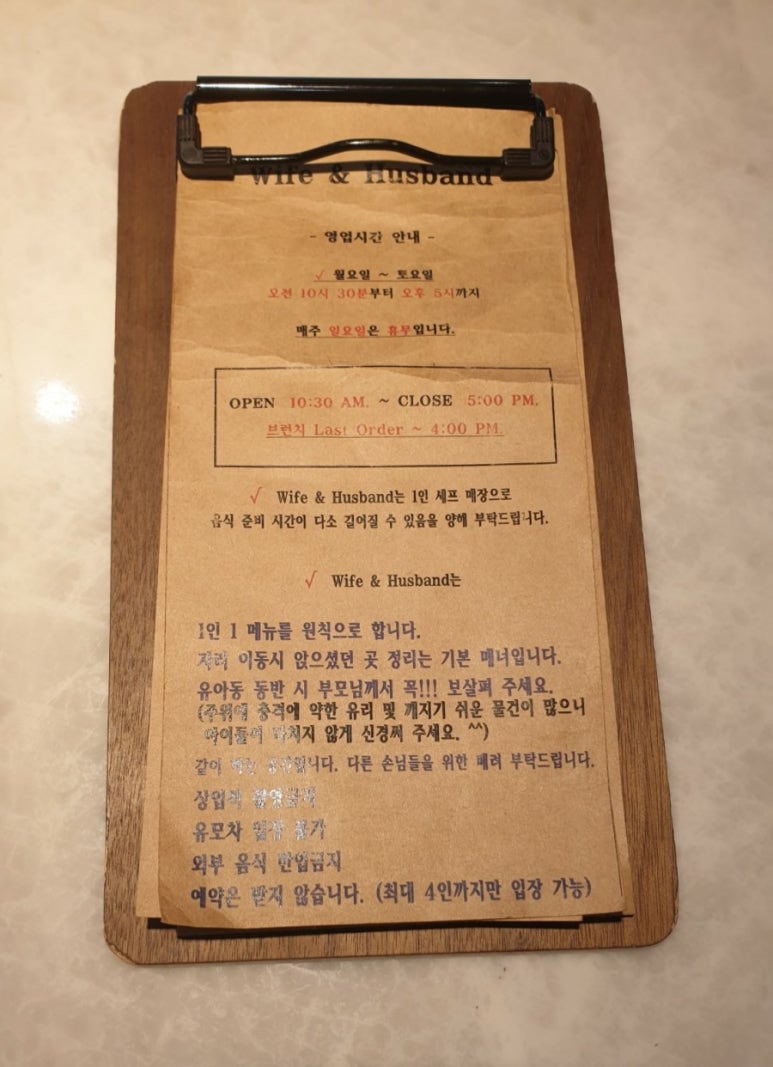 Wife & Husband
- 영업시간 안내 -
√ 월요일 ~ 토요일
오전 10시 30분부터 오후 5시까지
매주 일요일은 휴무입니다.
OPEN 10:30 AM. ~ CLOSE 5:00 PM.
브런치 Last Order ~ 4:00 PM.
√ Wife & Husband는 1인 셰프 매장으로
음식 준비 시간이 다소 길어질 수 있음을 양해 부탁드립니다.
√ Wife & Husband는
1인 1 메뉴를 원칙으로 합니다.
자리 이동시 앉으셨던 곳 정리는 기본 매너입니다.
유아동 동반 시 부모님께서 꼭!!! 보살펴 주세요.
(주위에 충격에 약한 유리 및 깨지기 쉬운 물건이 많으니
아이들이 다치지 않게 신경써 주세요. ^^)
같이 하는 공간입니다. 다른 손님들을 위한 배려 부탁드립니다.
상업적 촬영금지
유모차 입장 불가
외부 음식 반입금지
예약은 받지 않습니다. (최대 4인까지만 입장 가능)